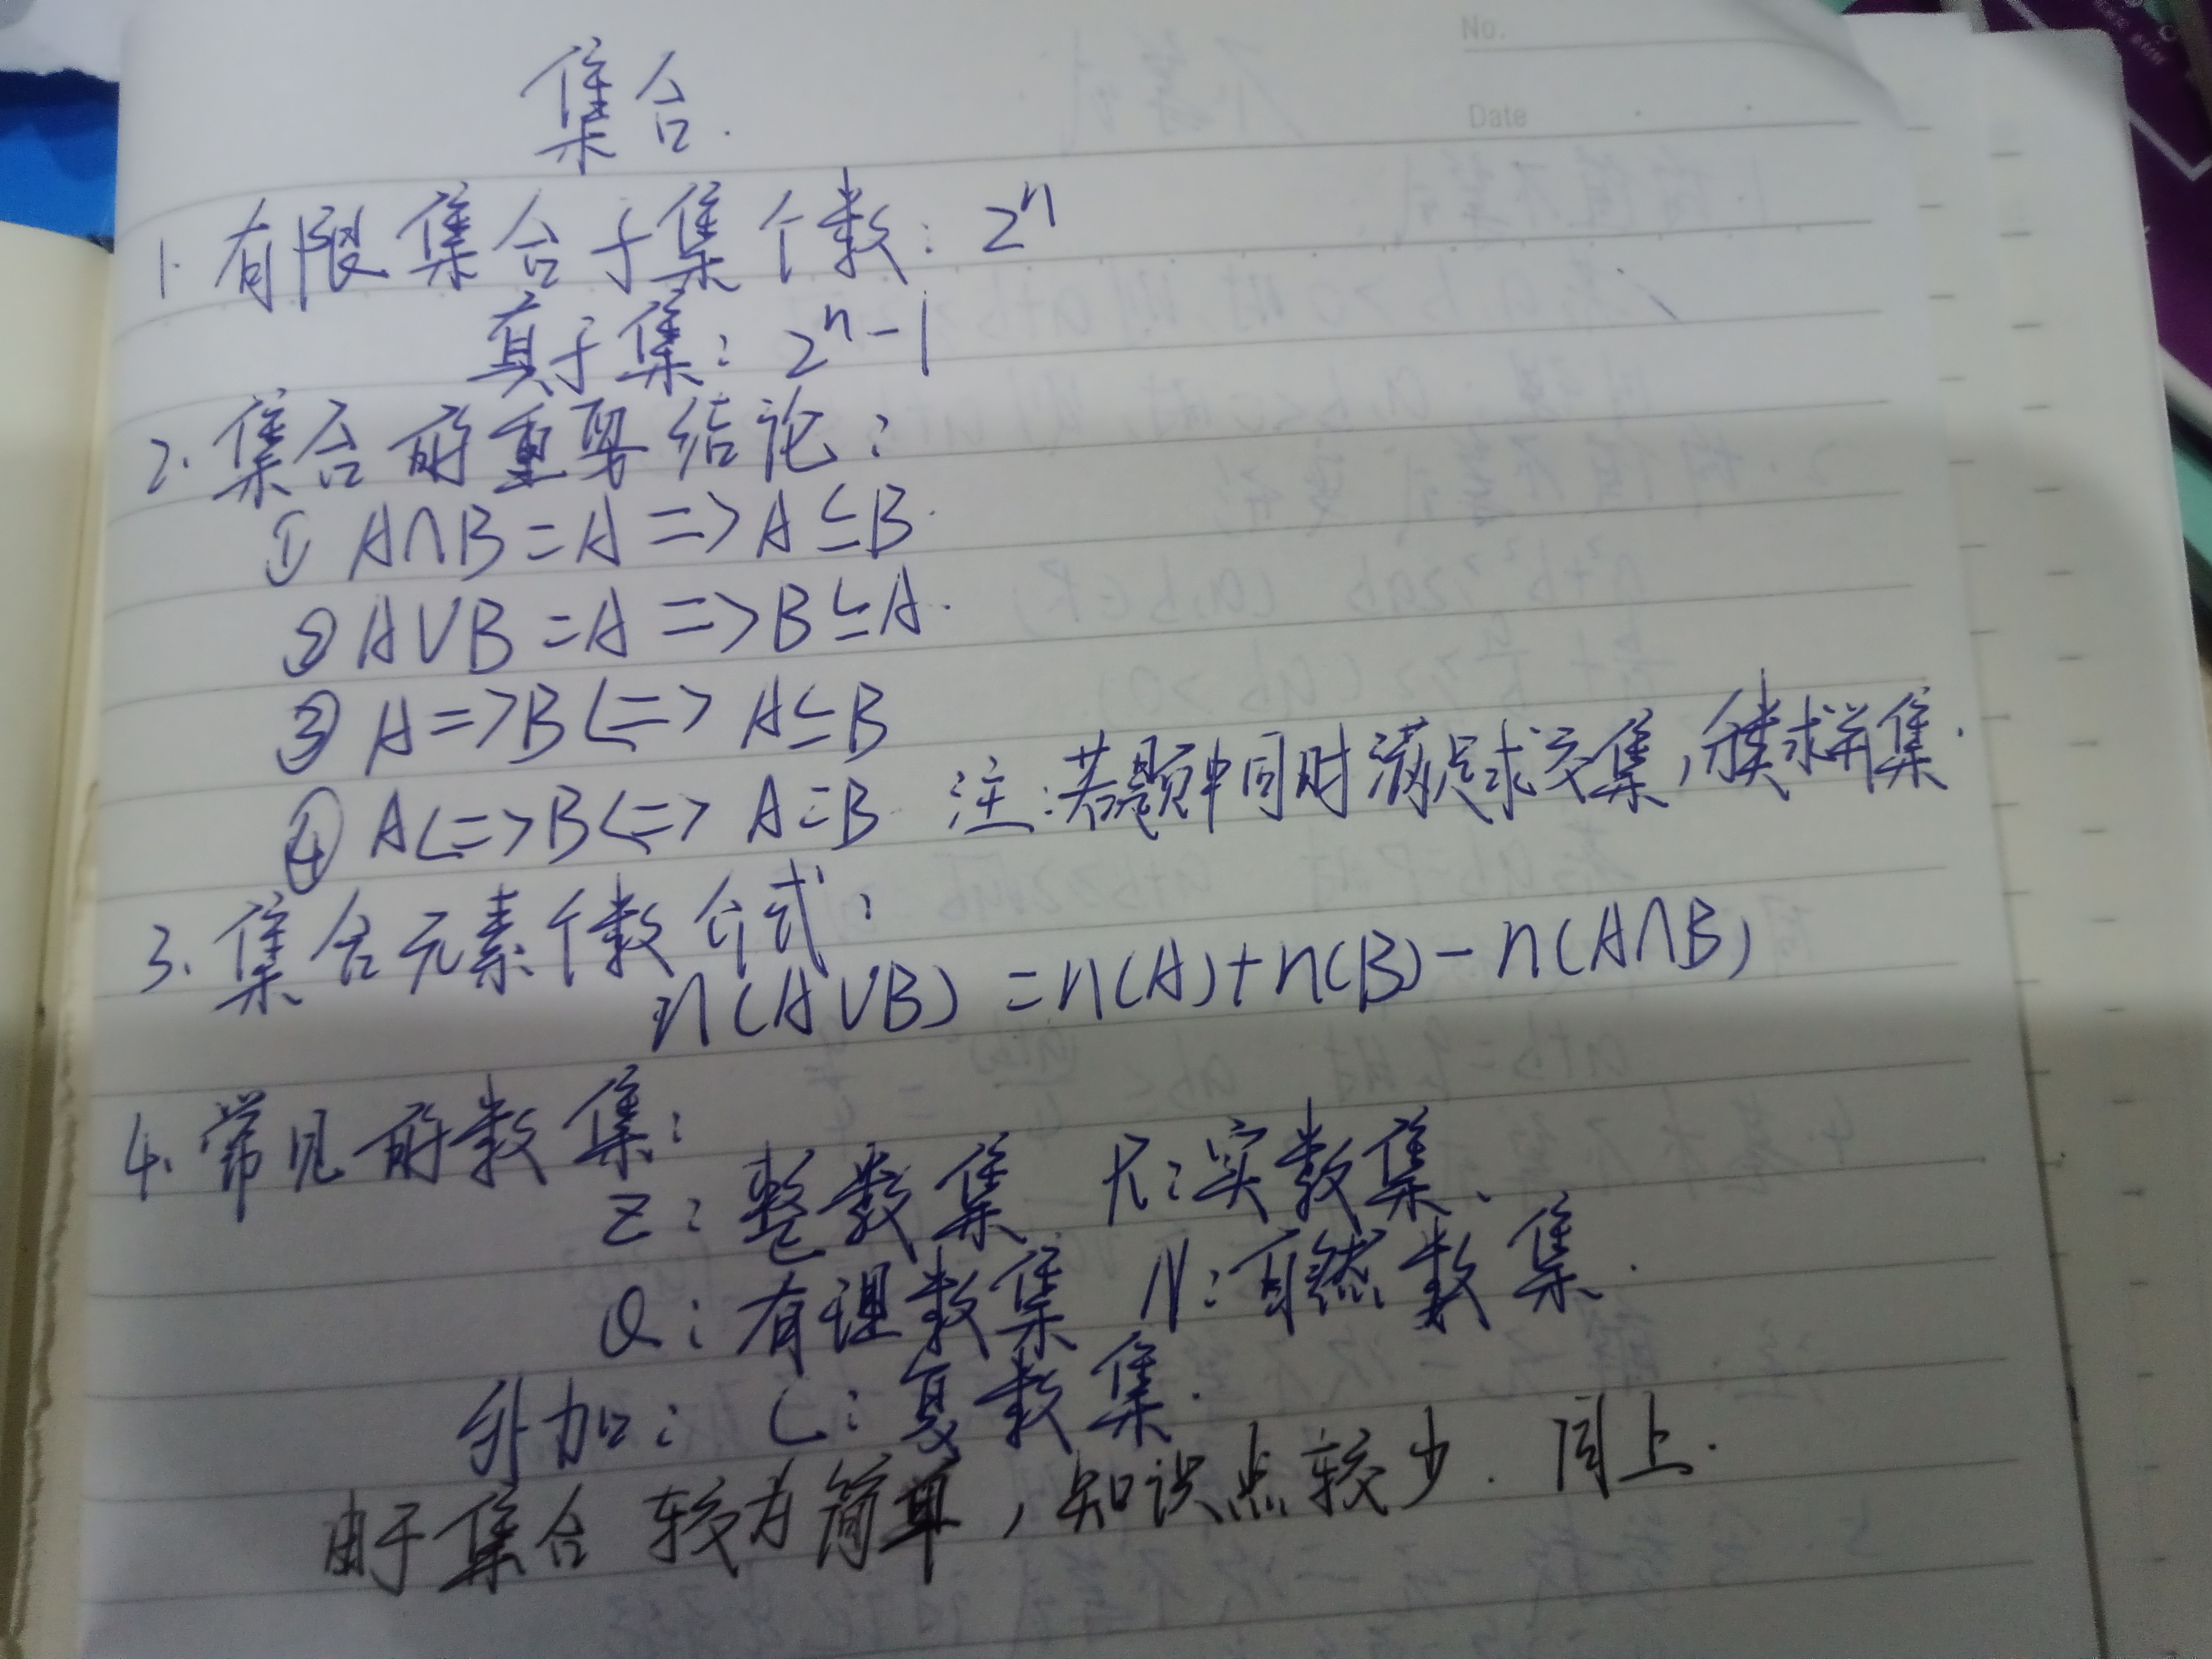 No.
Date
集合.
1. 有限集合子集个数: 2ⁿ
真子集: 2ⁿ-1
2. 集合的重要结论:
① A∩B=A => A⊆B.
② A∪B=A => B⊆A.
③ A=>B <=> A⊆B
④ A<=>B <=> A=B 注:若题中同时满足求交集,分类求并集.
3. 集合元素个数公式:
n(A∪B)=n(A)+n(B)-n(A∩B)
4. 常见的数集:
Z: 整数集 R: 实数集.
Q: 有理数集 N: 自然数集.
外加: C: 复数集.
由于集合较为简单,知识点较少. 同上.